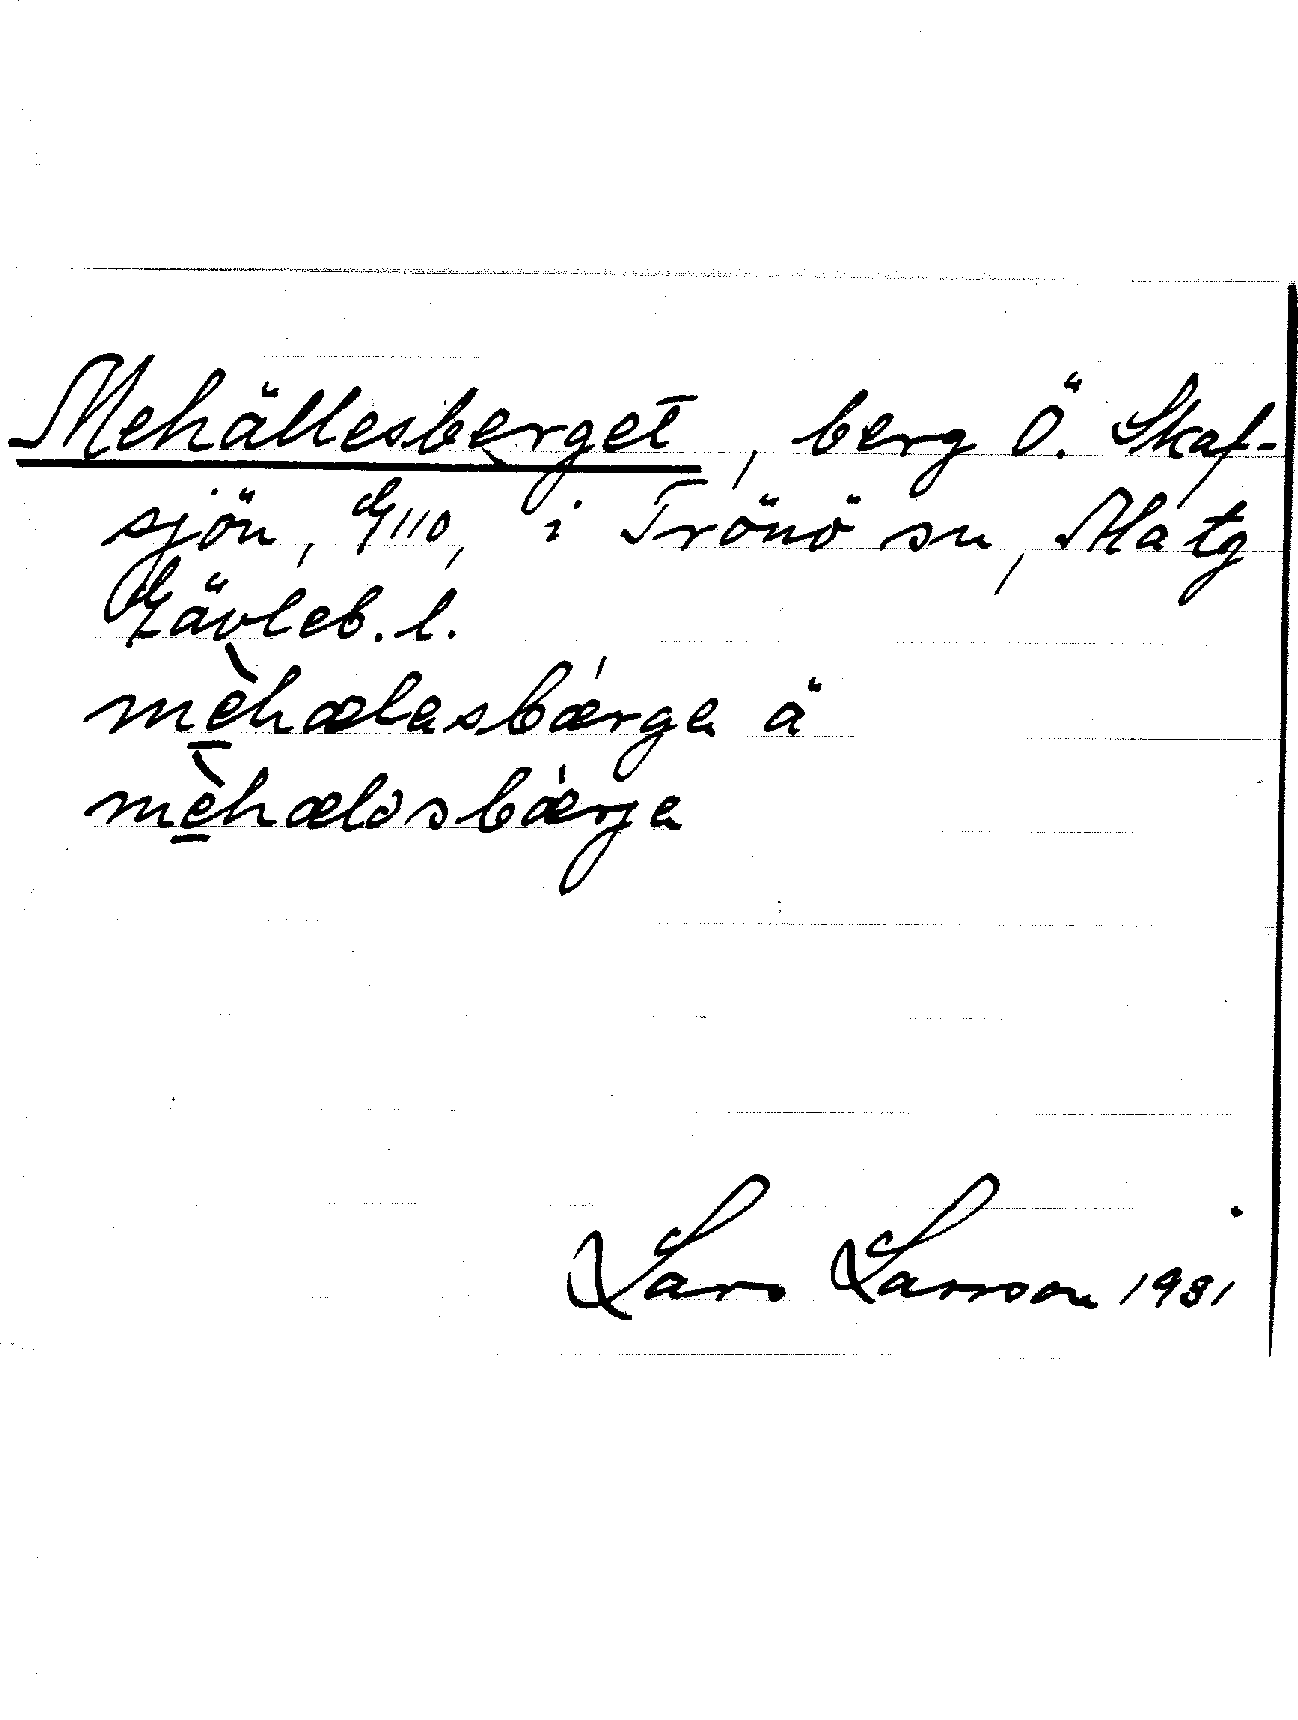 Mehällesberget, berg Ö. Skaf-
sjön, G110, i Trönö sn, Ala tg
Gävleb. l.
mèhælesbærge ä
mèhæləsbærge
Lars Larsson 1931